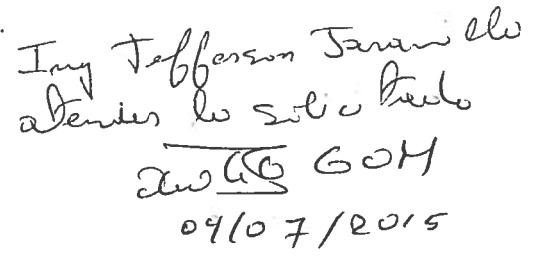 Ing Jefferson Jaramillo
atender lo solicitado
GOM
09/07/2015